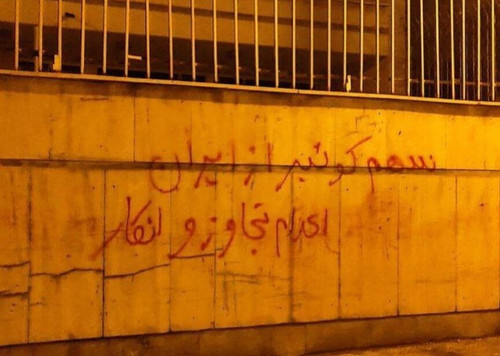 سهم کوئیر از ایران
اعدام تجاوز و انکار